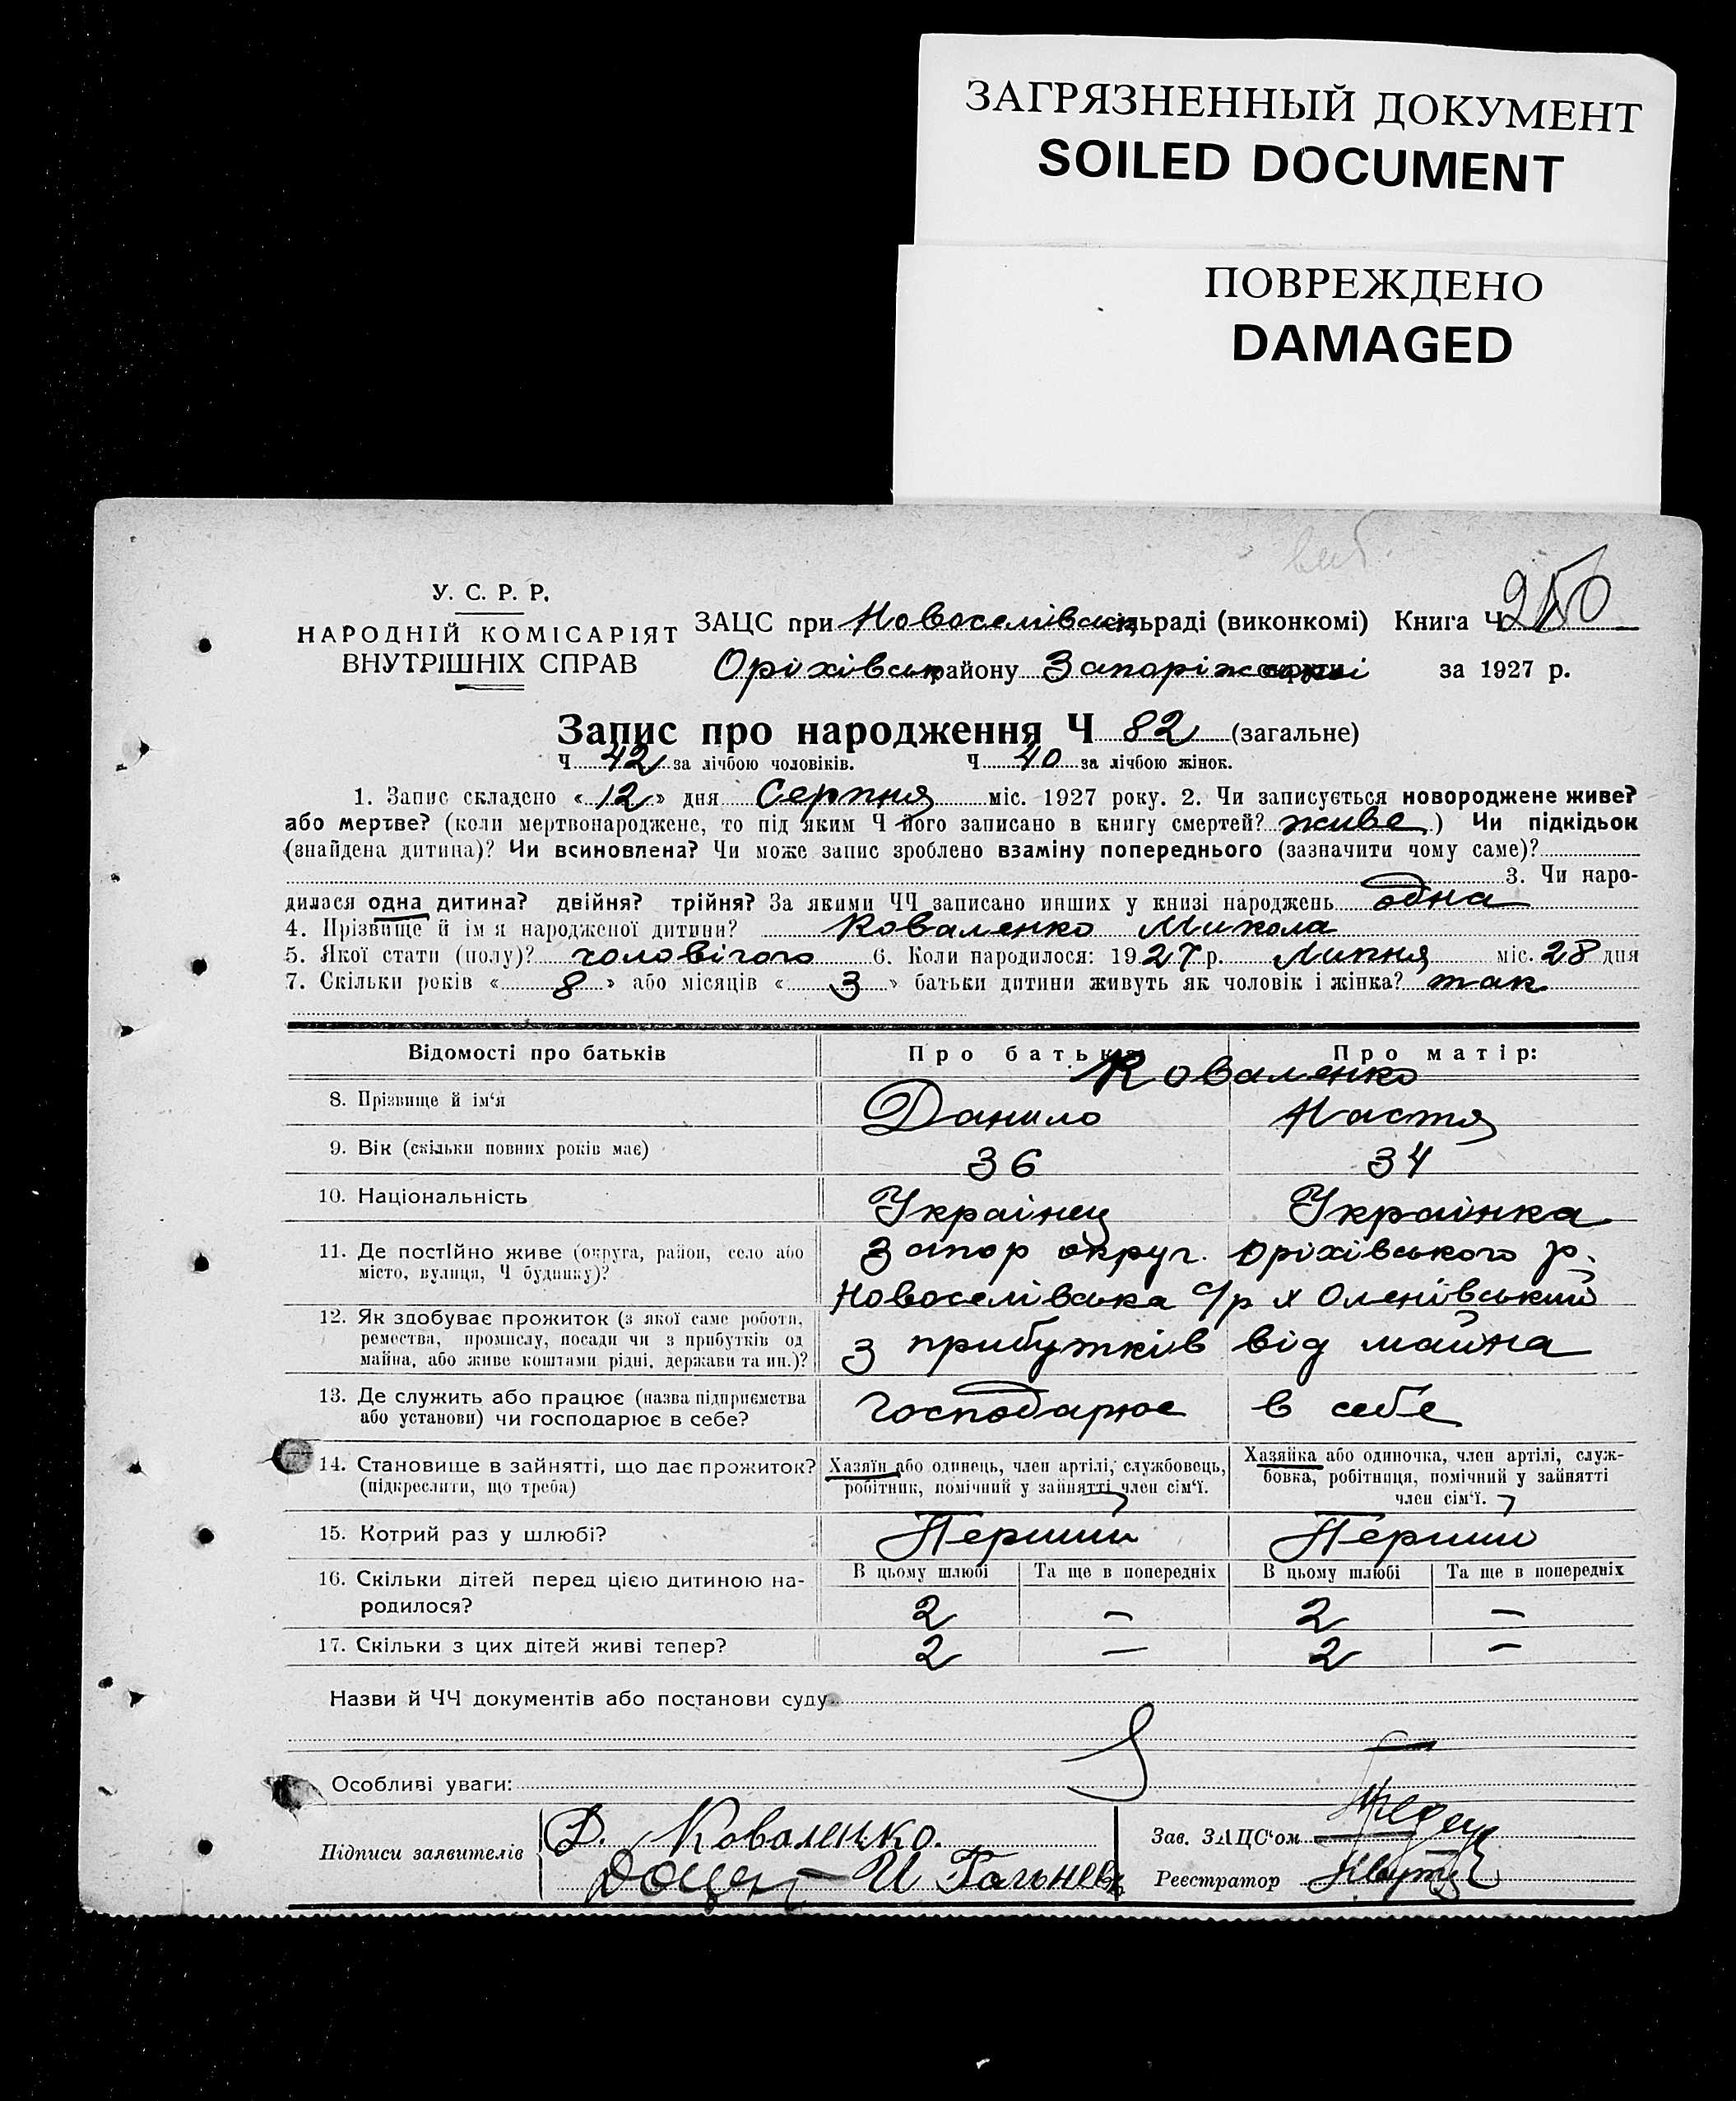 ЗАГРЯЗНЕННЫЙ ДОКУМЕНТ
SOILED DOCUMENT
ПОВРЕЖДЕНО
DAMAGED
У. С. Р. Р.
НАРОДНІЙ КОМІСАРІЯТ
ВНУТРІШНІХ СПРАВ
ЗАЦС при Новоселівськ сільраді (виконкомі) Книга Ч
Оріхівськ району Запоріжської округи за 1927 р.
Запис про народження Ч 82 (загальне)
Ч 42 за лічбою чоловіків. Ч 40 за лічбою жінок.
1. Запис складено «12» дня Серпня міс. 1927 року. 2. Чи записується новороджене живе?
або мертве? (коли мертвонароджене, то під яким Ч його записано в книгу смертей? живе) Чи підкідьок
(знайдена дитина)? Чи всиновлена? Чи може запис зроблено взаміну попереднього (зазначити чому саме)?
3. Чи наро-
дилася одна дитина? двійня? трійня? За якими ЧЧ записано инших у книзі народжень одна
4. Прізвище й ім я народженої дитини? Коваленко Микола
5. Якої стати (полу)? чоловічого 6. Коли народилося: 1927 р. Липня міс. 28 дня
7. Скільки років «8» або місяців «3» батьки дитини живуть як чоловік і жінка? так
Відомості про батьків Про батька: Про матір:
Коваленко
8. Прізвище й ім‘я Данило Настя
9. Вік (скільки повних років має) 36 34
10. Національність Українец Українка
11. Де постійно живе (округа, район, село або Запор округ. Оріхівського р.
місто, вулиця, Ч будинку)? Новоселівська с/р х Оленівський
12. Як здобуває прожиток (з якої саме роботи,
ремества, промислу, посади чи з прибутків од з прибутків від майна
майна, або живе коштами рідні, держави та ин.)?
13. Де служить або працює (назва підприємства Господарює в себе
або установи) чи господарює в себе?
14. Становище в зайнятті, що дає прожиток? Хазяїн або одинець, член артілі, службовець, Хазяйка або одиночка, член артілі, служ-
(підкреслити, що треба) робітник, помічний у зайнятті член сім‘ї. бовка, робітниця, помічний у зайнятті
член сім‘ї.
15. Котрий раз у шлюбі? Перший Перший
16. Скільки дітей перед цією дитиною на- В цьому шлюбі Та ще в попередніх В цьому шлюбі Та ще в попередніх
родилося? 2 — 2 —
17. Скільки з цих дітей живі тепер? 2 — 2 —
Назви й ЧЧ документів або постанови суду
Особливі уваги:
Підписи заявителів Д. Коваленко.
Зав. ЗАЦС‘ом
Реєстратор